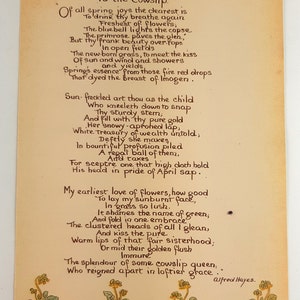 To the Cowslip.
Of all spring joys the dearest is
To drink thy breathe again
Freshest of flowers;
The bluebell lights the copse,
The primrose paves the glen,
But thy frank beauty overtops
In open fields
The new-born grass, to meet the kiss
Of sun and wind and showers
and yields
Spring's essence from those five red drops
That dyed the breast of Imogen.
Sun-freckled art thou as the child
Who kneeleth down to snap
Thy sturdy stem,
And fill with thy pure gold
Her snowy-aproned lap,
White treasury of wealth untold;
Deftly she makes,
In bountiful profusion piled
A regal ball of them,
And takes
For sceptre one that high doth hold
His head in pride of April sap.
My earliest love of flowers, how good
To lay my sunburnt face,
In grass so lush,
It shames the name of green,
And fold in one embrace
The clustered heads of all I glean,
And kiss the pure
Warm lips of that fair sisterhood;
Or mid their golden flush
Immure
The splendour of some cowslip queen,
Who reigned apart in loftier grace.
Alfred Hayes.